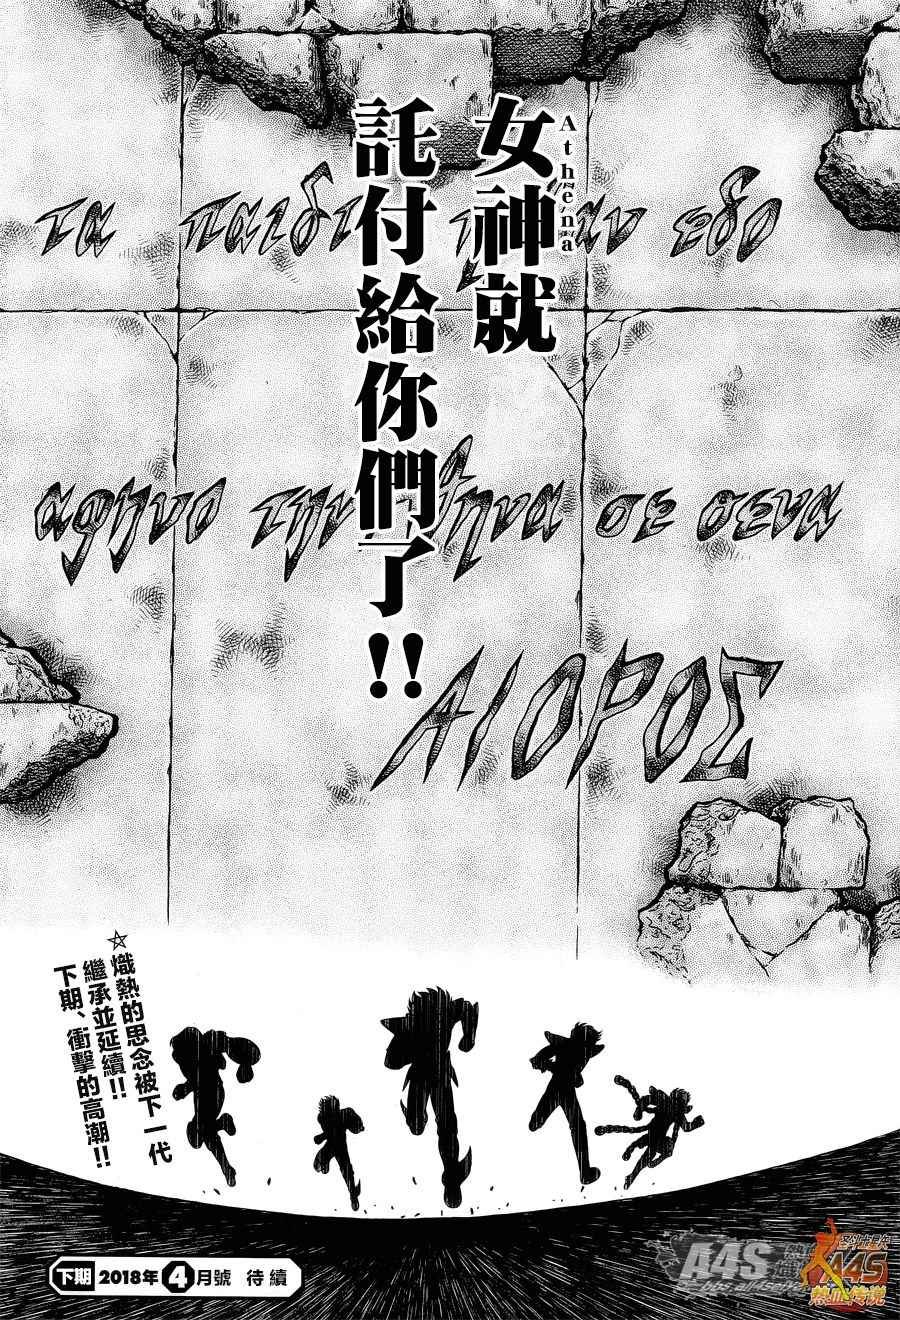 女神就
Athena
託付給你們了!!
τα παιδ αν εδο
αφηνο την θηνα σε σενα
ΑΙΟΡΟΣ
☆熾熱的思念被下一代
繼承並延續!!
下期、衝擊的高潮!!
下期 2018年4月號 待續
A4S
A4S
熱血传说